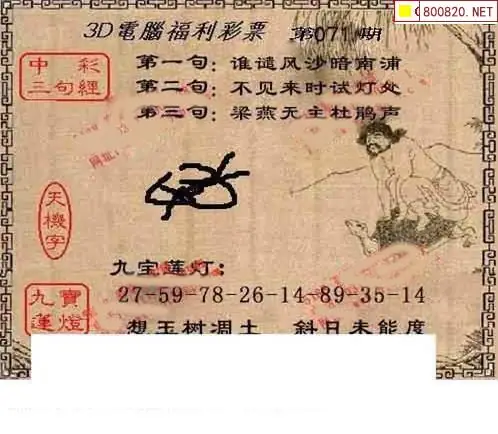 800820.NET
3D電腦福利彩票 第071期
中彩
三句經
第一句：谁谴风沙暗南浦
第二句：不见来时试灯处
第三句：梁燕无主杜鹃声
天機字
九宝莲灯：
九寶
蓮燈
27-59-78-26-14 89-35-14
想玉树凋土 斜日未能度